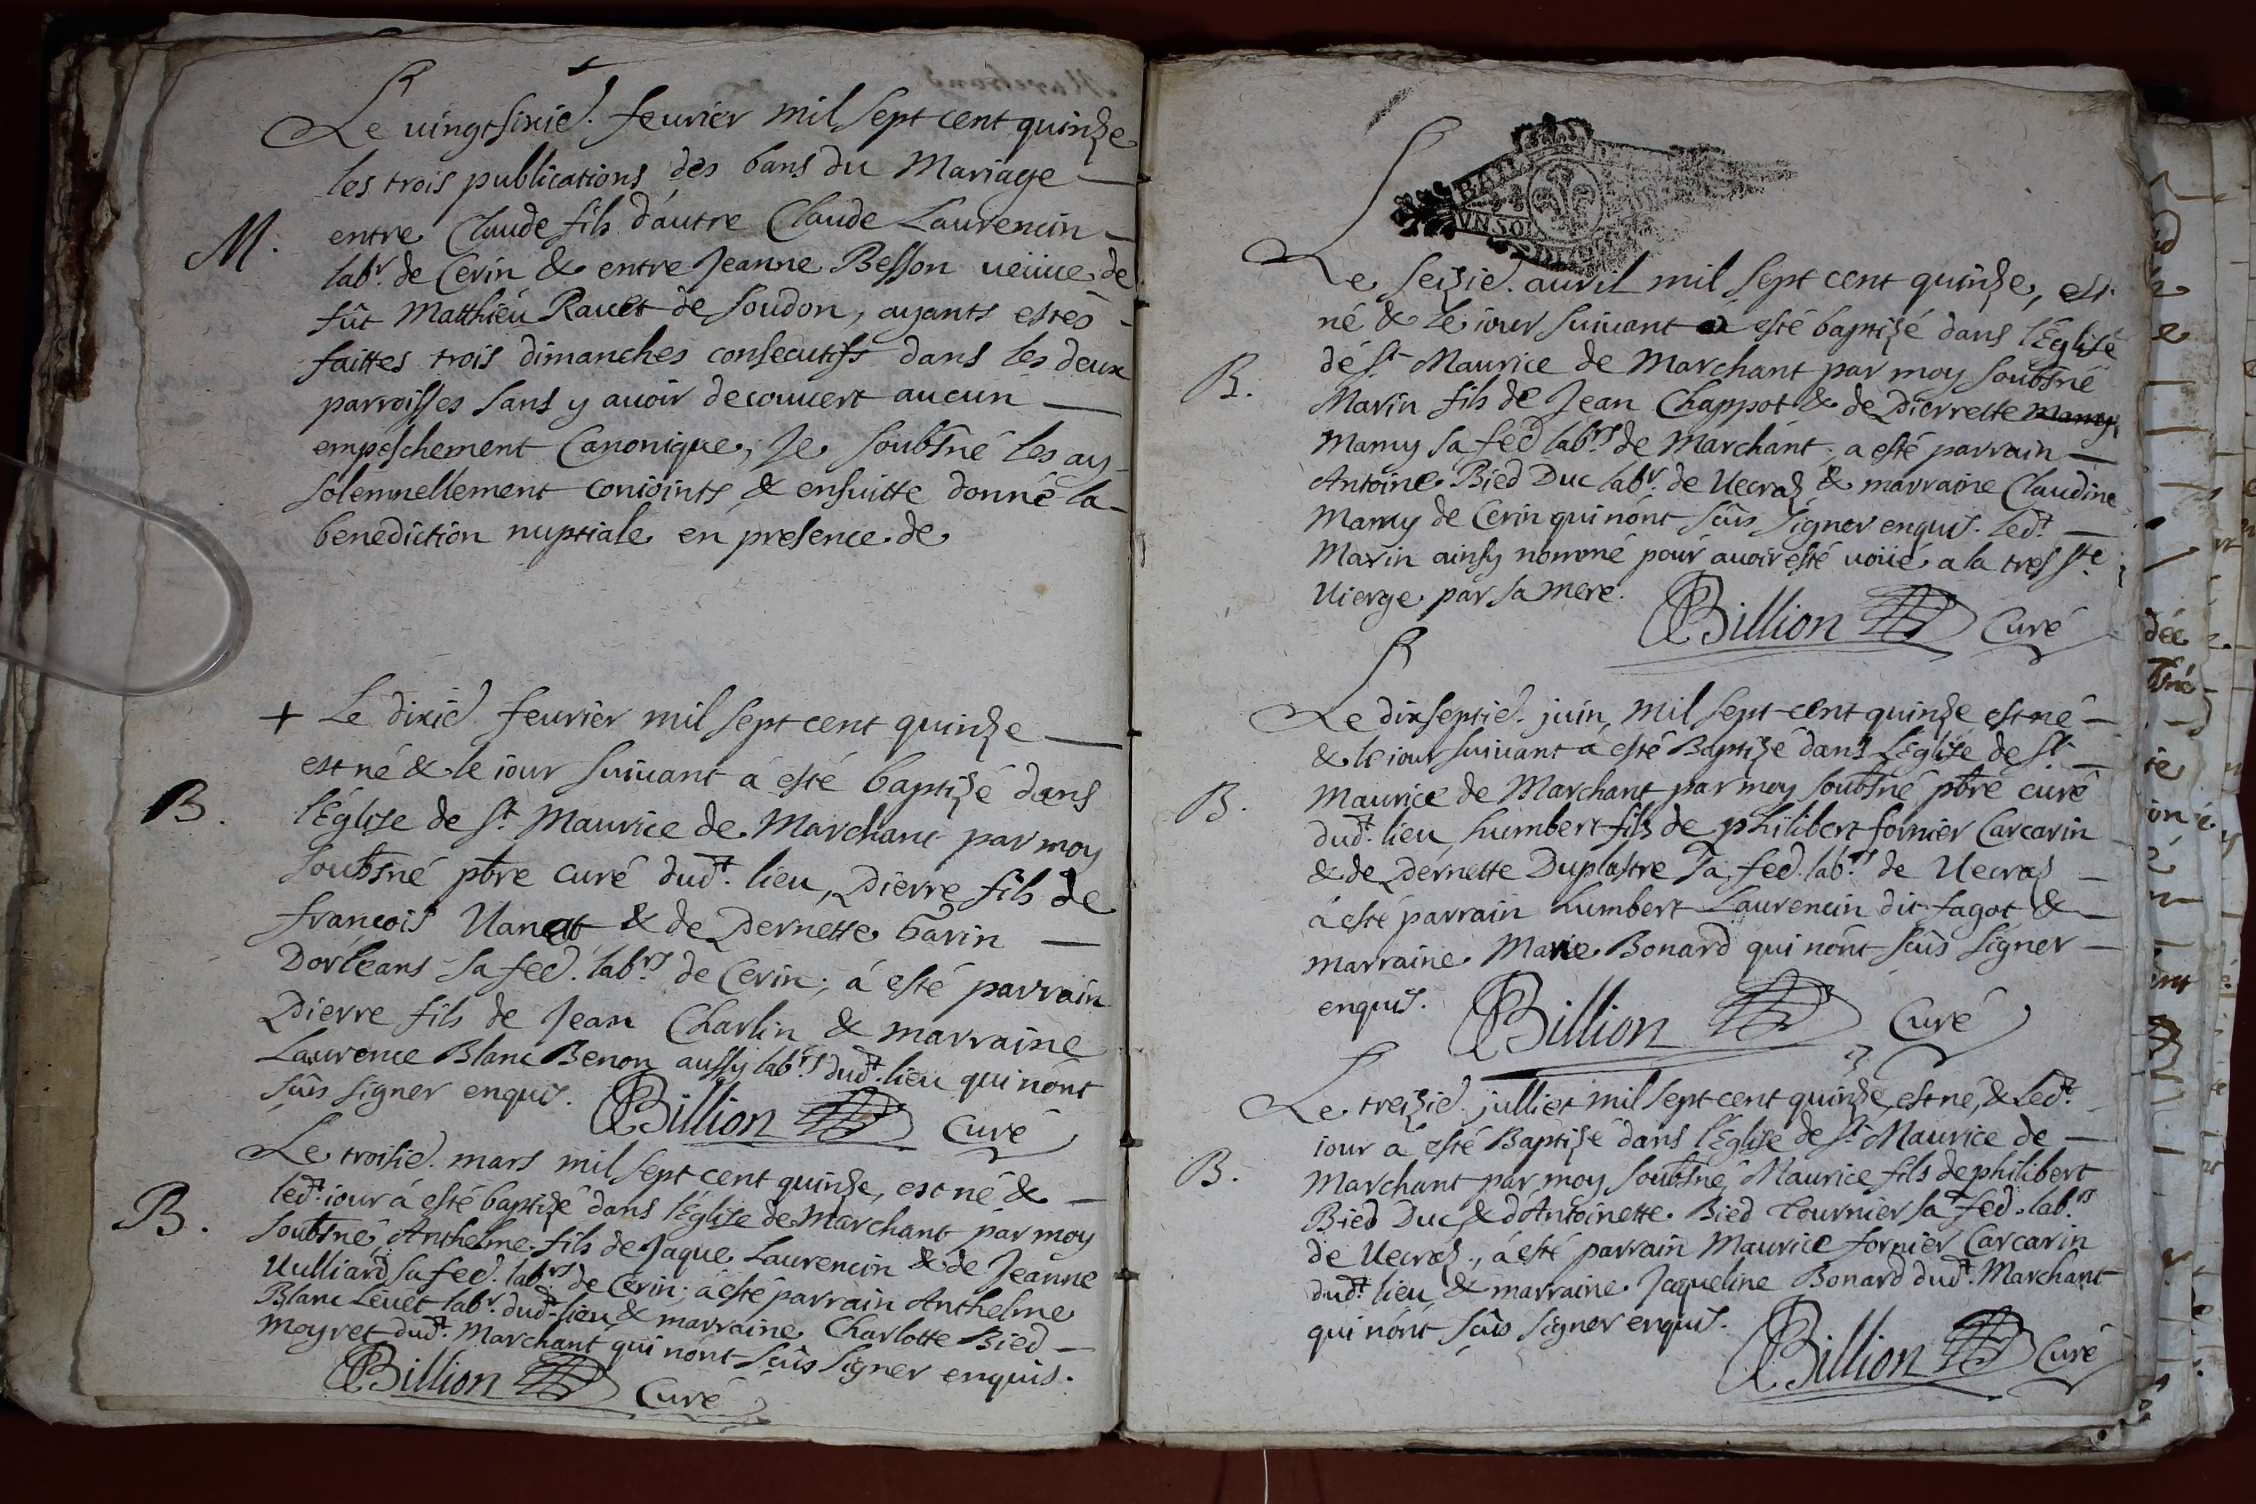 Le vingt sixie. feurier mil sept cent quinze
les trois publications des bans du Mariage
M. entre Claude fils d'autre Claude Laurencin
labr. de Cerin & entre Jeanne Besson ueüue de
fût Matthieu Rauet de Soudon, ayants estés
faittes trois dimanches consecutifs dans les deux
parroisses sans y auoir decouuert aucun
empéschement Canonique, Je soubsné les ay
solemnellement conioints & ensuitte donné la
benediction nuptiale en presence de
+ Le dixie. feurier mil sept cent quinze
est né & le iour suiuant á esté baptizé dans
B. l'Eglise de St. Maurice de Marchant par moy
soubsné pbre curé dudt. lieu, Pierre fils de
francois & de Pernette Garin
Dorleans sa fee. labrs de Cerin; á esté parrain
Pierre fils de Jean Charlin & marraine
Laurence Blanc Benon aussy labrs dudt. lieu qui n'ont
sûs signer enquis. Billion Curé
Le troisie. mars mil sept cent quinze, est né &
ledt. iour á esté baptizé dans l'Eglise de Marchant par moy
B. soubsné, Anthelme fils de Jaque Laurencin & de Jeanne
Uulliard sa fee. labrs de Cerin; á esté parrain Anthelme
Blanc Leuet labr. dudt. lieu & marraine Charlotte Bied
moyret dudt. Marchant qui n'ont sûs signer enquis.
Billion Curé
UN SOL
Le seizie. auril mil sept cent quinze, est
né & le iour suiuant a esté baptizé dans l'Eglise
de St. Maurice de Marchant par moy soubsné
B. Marin fils de Jean Chappot & de Pierrette
Mamy sa fee labrs de Marchant; a esté parrain
Antoine Bied Duc labr. de Uecraz & marraine Claudine
Mamy de Cerin qui n'ont sûs signer enquis. Ledt.
Marin ainsy nommé pour auoir esté uoüé a la tres Ste
Uierge par sa mere.
Billion Curé
Le dixseptie. juin mil sept cent quinze est né
& le iour suiuant á esté Baptizé dans l'Eglise de St
B. Maurice de Marchant par moy soubsné pbre curé
dudt. lieu, humbert fils de philibert fornier Carcarin
& de Pernette Duplastre sa fee. labrs de Uecraz
á esté parrain humbert Laurencin dit fagot &
marraine Marie Bonard qui n'ont sûs signer
enquis. Billion Curé
Le treizie. julliet mil sept cent quinze, est né, & ledt.
iour á esté Baptizé dans l'Eglise de St Maurice de
B. Marchant par moy soubsné, Maurice fils de philibert
Bied Duc & d'Antoinette Bied Tournier sa fee. labrs
de Uecraz, á esté parrain Maurice fornier Carcarin
dudt. lieu & marraine Jaqueline Bonard dudt. Marchant
qui n'ont sûs signer enquis.
Billion Curé